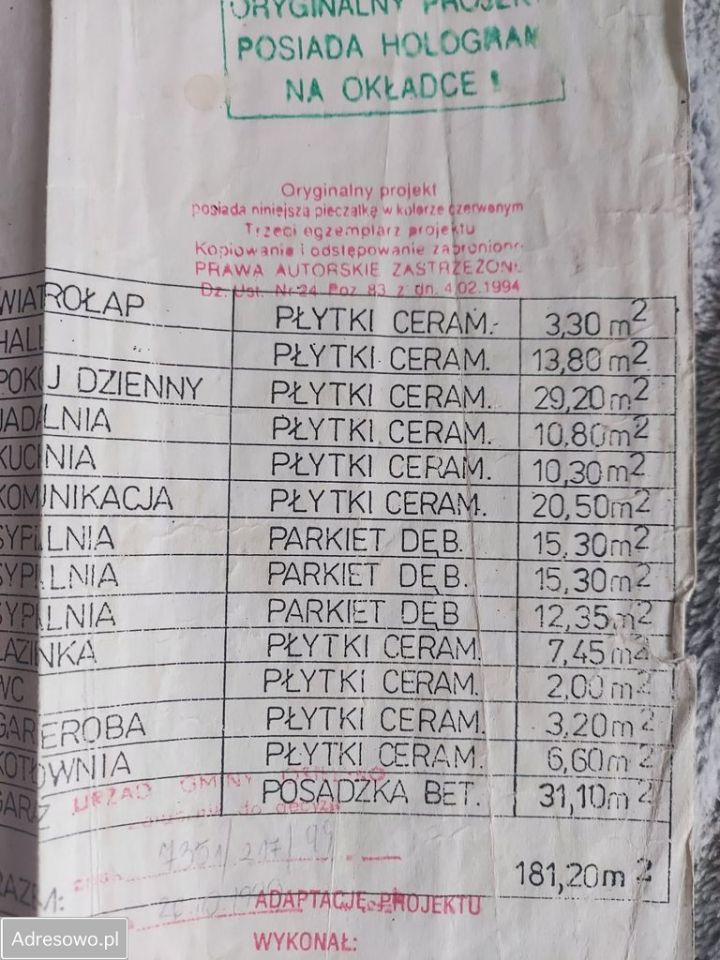 ORYGINALNY PROJEKT
POSIADA HOLOGRAM
NA OKŁADCE !
Oryginalny projekt
posiada niniejszą pieczątkę w kolorze czerwonym
Trzeci egzemplarz projektu
Kopiowanie i odstępowanie zabronione
PRAWA AUTORSKIE ZASTRZEŻONE
Dz. Ust. Nr 24 Poz 83 z dn. 4.02.1994
WIATROŁAP PŁYTKI CERAM. 3,30 m2
HALL PŁYTKI CERAM. 13,80 m2
POKÓJ DZIENNY PŁYTKI CERAM. 29,20 m2
JADALNIA PŁYTKI CERAM. 10,80 m2
KUCHNIA PŁYTKI CERAM. 10,30 m2
KOMUNIKACJA PŁYTKI CERAM. 20,50 m2
SYPIALNIA PARKIET DĘB. 15,30 m2
SYPIALNIA PARKIET DĘB. 15,30 m2
SYPIALNIA PARKIET DĘB 12,35 m2
ŁAZIENKA PŁYTKI CERAM. 7,45 m2
WC PŁYTKI CERAM. 2,00 m2
GARDEROBA PŁYTKI CERAM. 3,20 m2
KOTŁOWNIA PŁYTKI CERAM. 6,60 m2
GARAŻ POSADZKA BET. 31,10 m2
URZĄD GMINY
do decyzji
znak 7351/217/99
RAZEM: 181,20 m2
ADAPTACJĘ PROJEKTU
WYKONAŁ:
Adresowo.pl